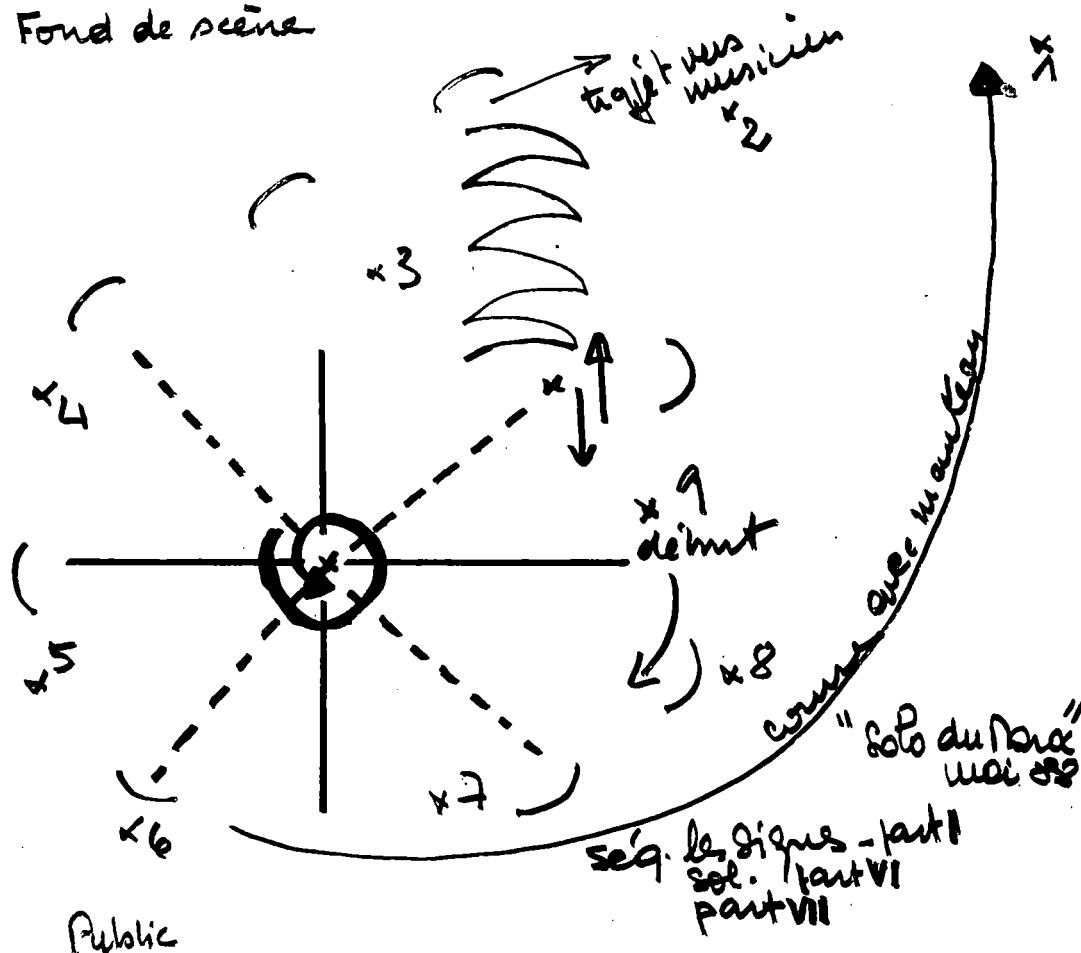 Fond de scène
trajet vers
musicien
x 2
x 1
x 3
x 4
x 9
début
x 5
x 8
course avec manteau
"Solo du
mai
x 7
x 6
séq. les signes - part I
sol. part VI
part VII
Public